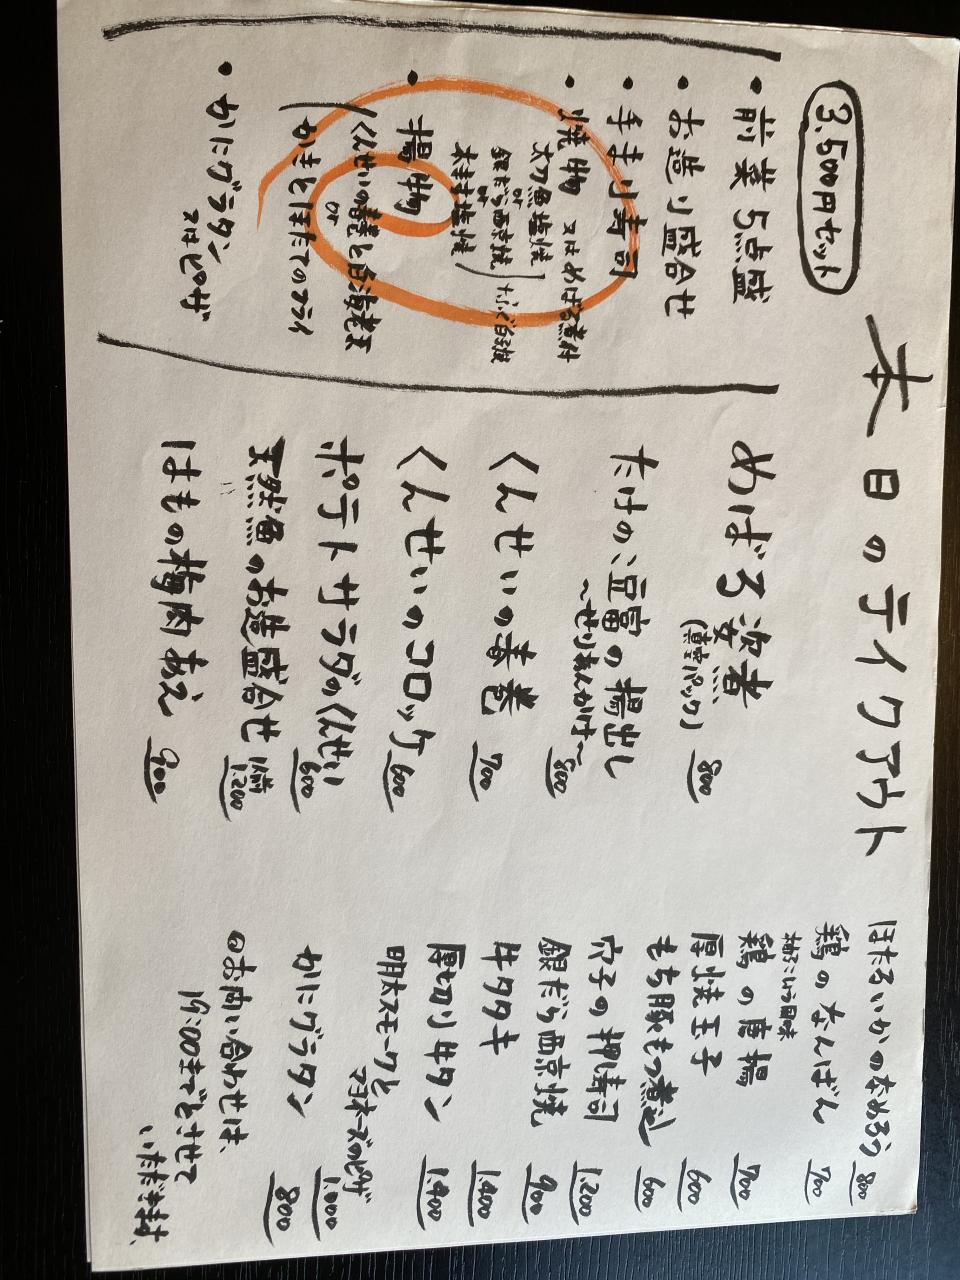 本日のテイクアウト
3.500円セット
・前菜5点盛
・お造り盛合せ
・手まり寿司
・焼物 又はめばる煮付
太刀魚塩焼
or
銀だら西京焼
or
塩焼
・揚物
くんせいの春巻と白海老天
or
かきとほたてのフライ
・かにグラタン
又はピザ
めばる煮
(真空パック) 800
たけのこ豆富の揚出し
〜せりあんかけ〜 800
くんせいの春巻 700
くんせいのコロッケ 600
ポテトサラダのくんせい 600
天然魚のお造盛合せ 1人前 1.200
はもの梅肉あえ 900
ほたるいかのなめろう 800
鶏のなんばん 700
柚子こしょう風味
鶏の唐揚 700
厚焼玉子 600
もち豚もつ煮込 600
穴子の押寿司 1.200
銀だら西京焼 900
牛タタキ 1.400
厚切り牛タン 1.400
明太スモークと
マヨネーズのピザ 1.000
かにグラタン 800
◎お問い合わせは、
19:00までとさせて
いただきます。